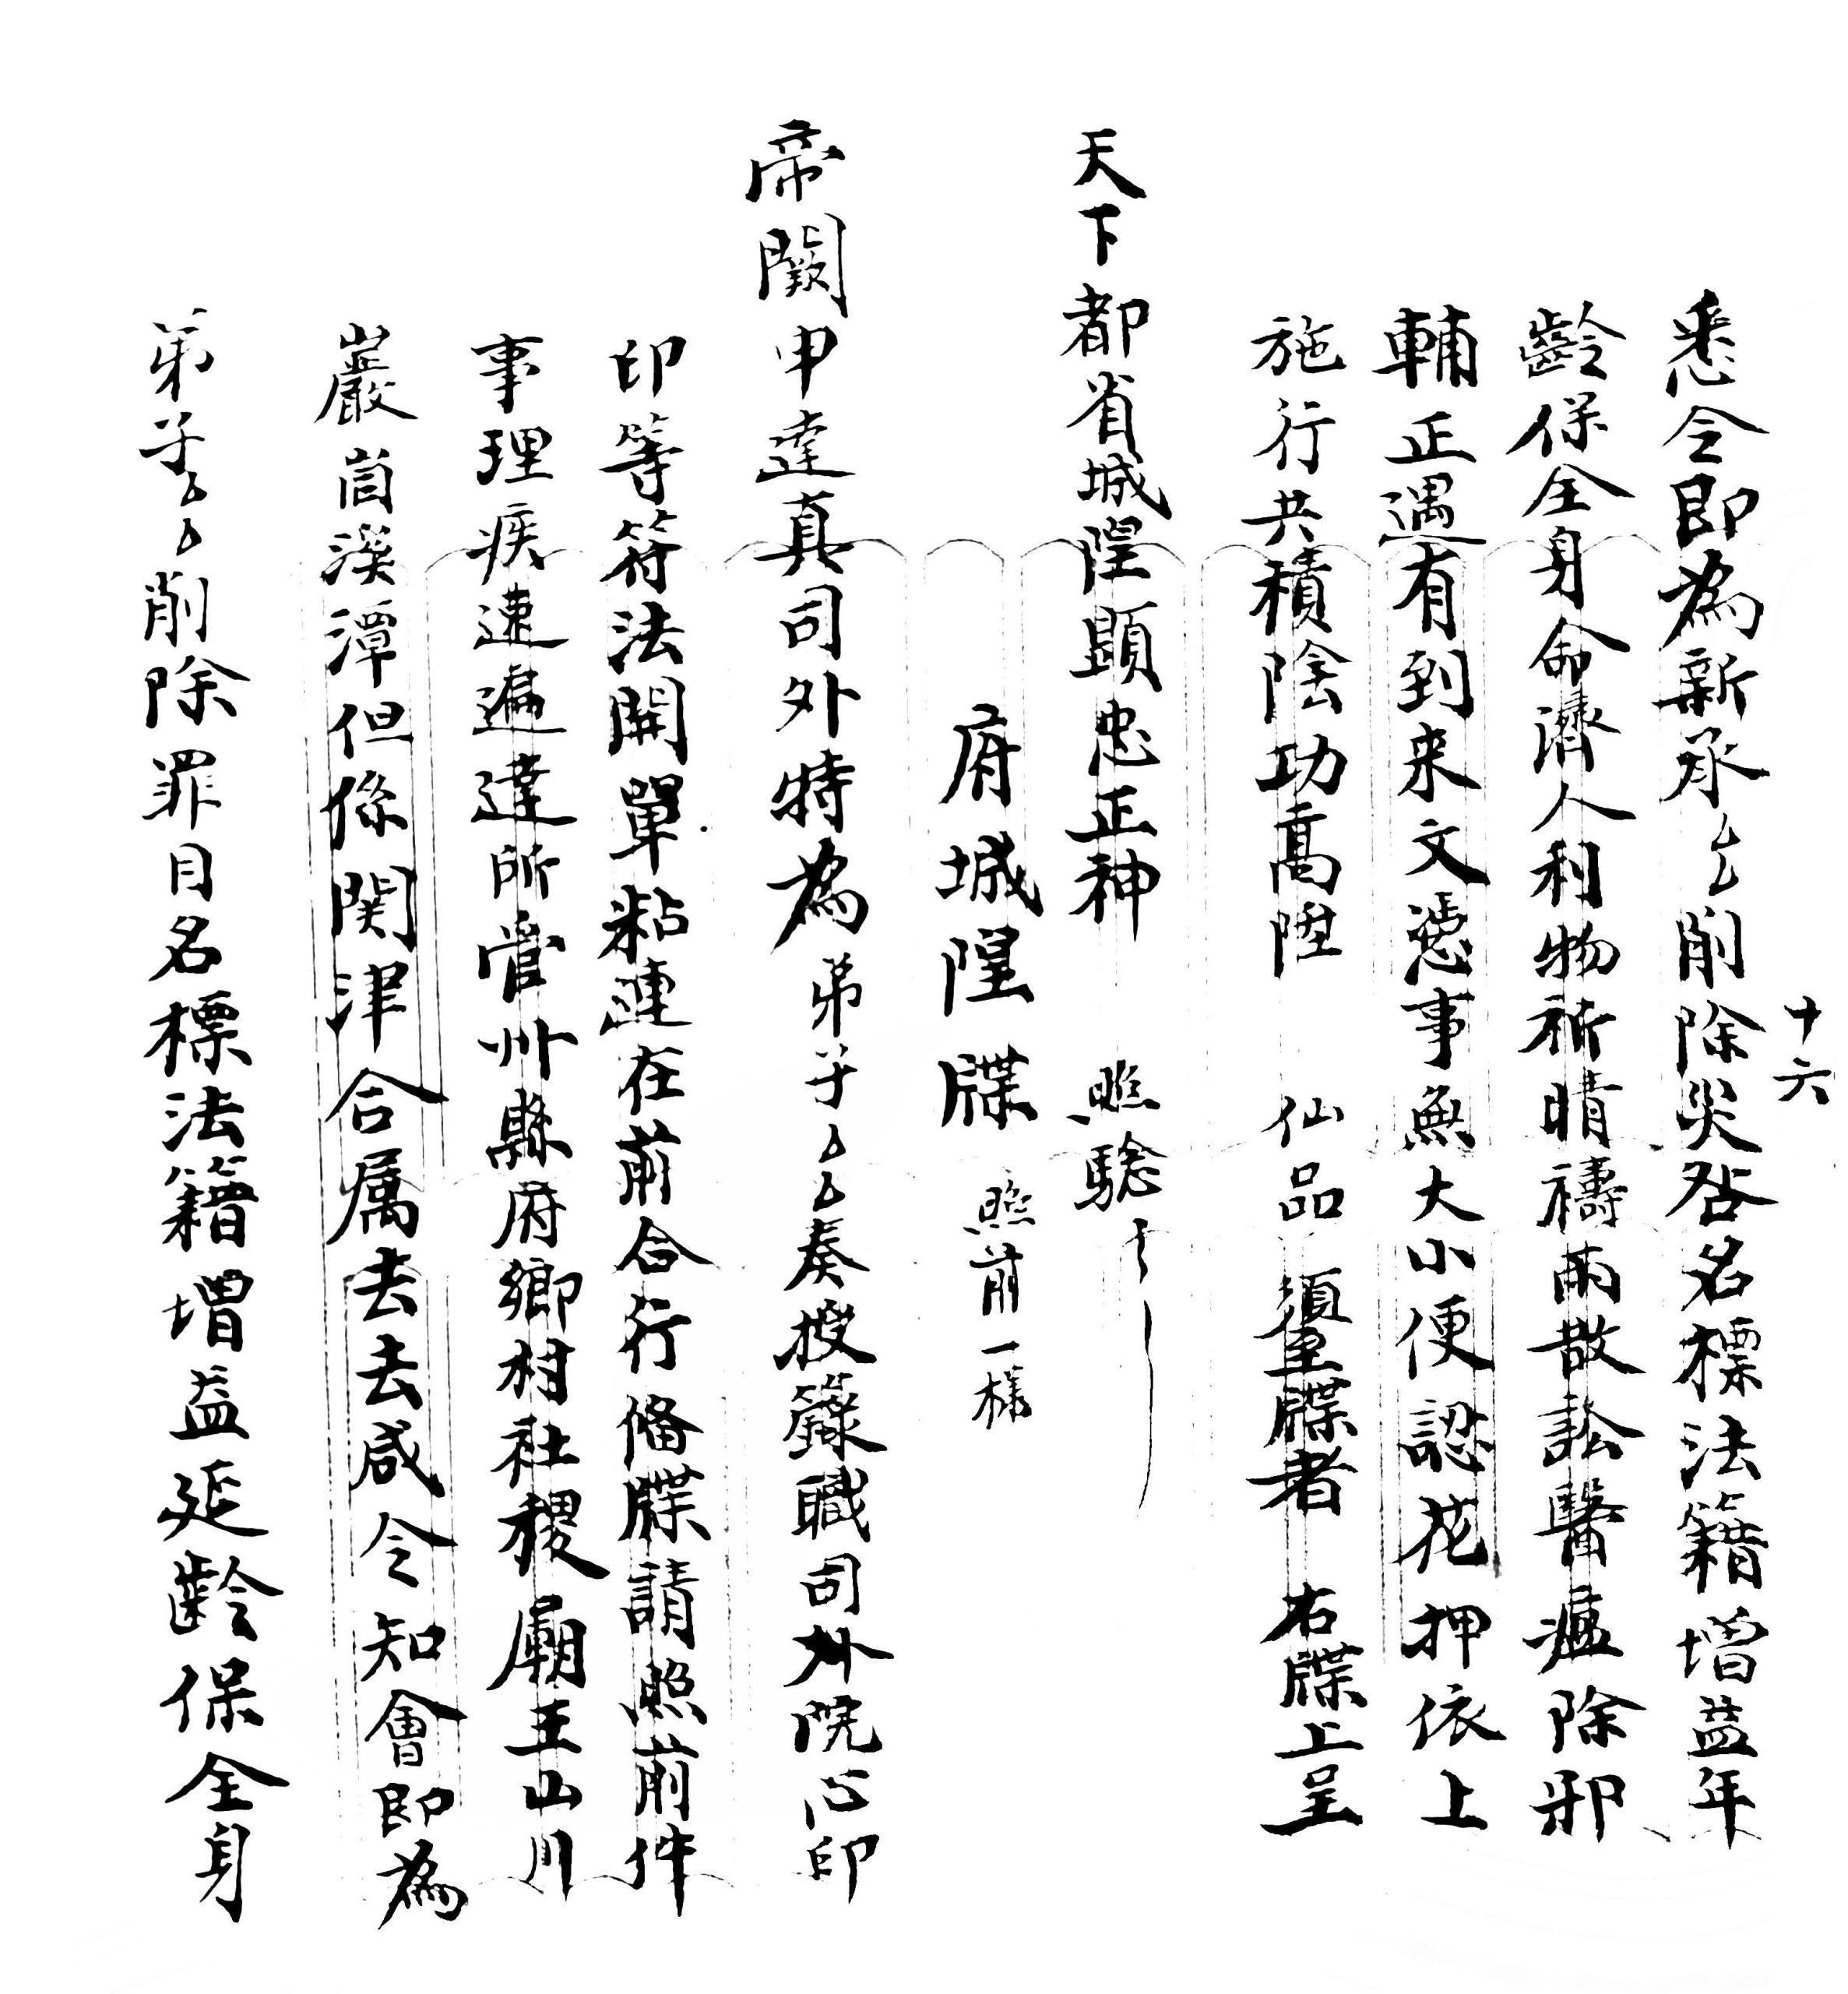 十六
悉令即為新承厶厶削除災咎名標法籍增益年
齡保全身命濟人利物祈晴禱雨散訟醫瘟除邪
輔正遇有到来文遞事無大小便認花押依上
施行共積陰功高陞 仙品 須至牒者 右牒上呈
天下都省城隍顕忠正神 照驗
府城隍牒 照前一樣
帝闕申達真司外特為弟子厶厶奏授籙職司外院心印
印等符法開單粘連在前合行偹牒請照前件
事理疾速遍達所管州縣府鄉村社稷廟王山川
巖洞溪潭但係関津合属去去咸令知會即為
弟子厶厶削除罪目名標法籍增益延齡保全身